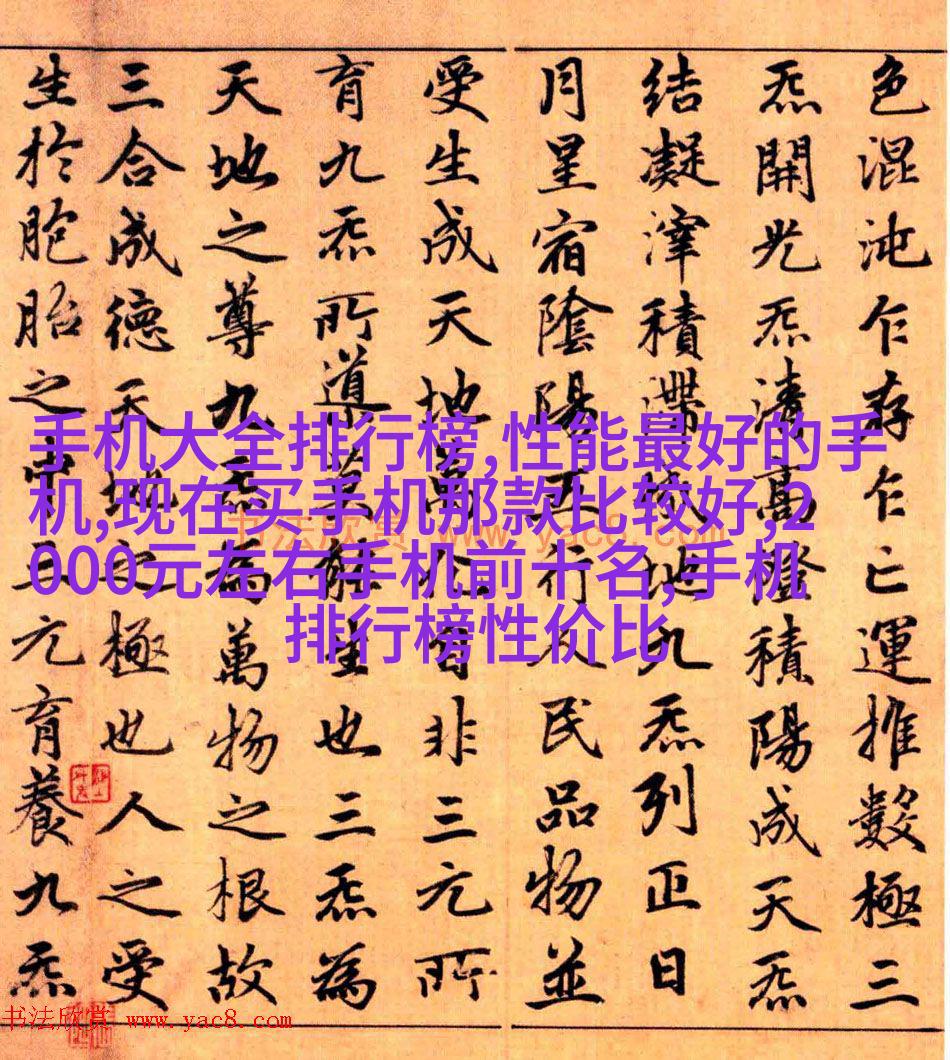 色混沌乍存乍亡運推數極三
炁開光炁清高澄積陽成天炁
結凝滓積滯成地九炁列正日
月星宿陰陽五行人民品物並
受生成天地萬化自非三元所
育九炁所導莫能生也三炁為
天地之尊九炁為萬物之根故
三合成德天地之極也人之受
生於胞胎之中三元育養九炁
手机大全排行榜,性能最好的手
机,现在买手机那款比较好,2
000元左右手机前十名,手机
排行榜性价比
书法欣赏 www.yac8.com
书法欣赏 www.yac8.com